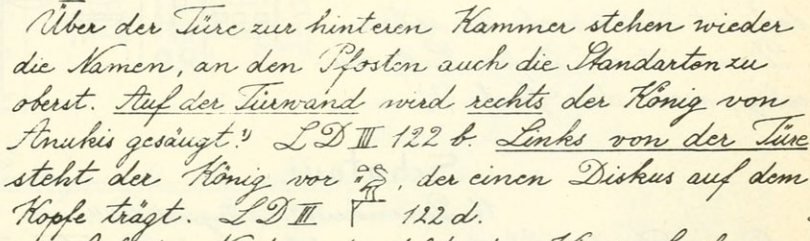 Über der Türe zur hinteren Kammer stehen wieder
die Namen, an den Pfosten auch die Standarten zu
oberst. Auf der Türwand wird rechts der König von
Anukis gesäugt.¹) LD III 122 b. Links von der Türe
steht der König vor , der einen Diskus auf dem
Kopfe trägt. LD III 122 d.